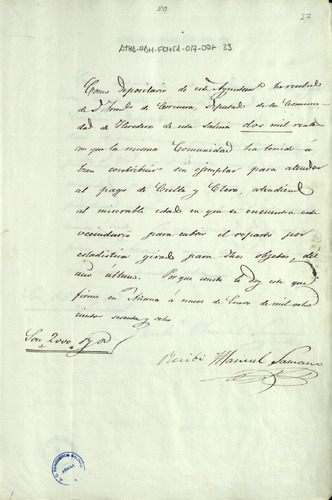 23
27
ATHA-DAH-FCMSA-017-001 23
Como Depositario de este Ayuntamto he recibido
de Dn Tomás de Corcuera, Diputado de la Comuni-
dad de Herederos de esta Salina dos mil reales
con que la misma Comunidad ha tenido á
bien contribuir sin ejemplar para atender
al pago de Culto y Clero, atendiend
al miserable estado en que se encuentra este
vecindario para cubrir el reparto por
estadistica girado para dhos objetos, del
año último. Por que conste le doy este que
firmo en Añana á nueve de Enero de mil ocho
cientos sesenta y ocho
Son 2000 rs vn
Recibí Manuel Samano
AÑANA